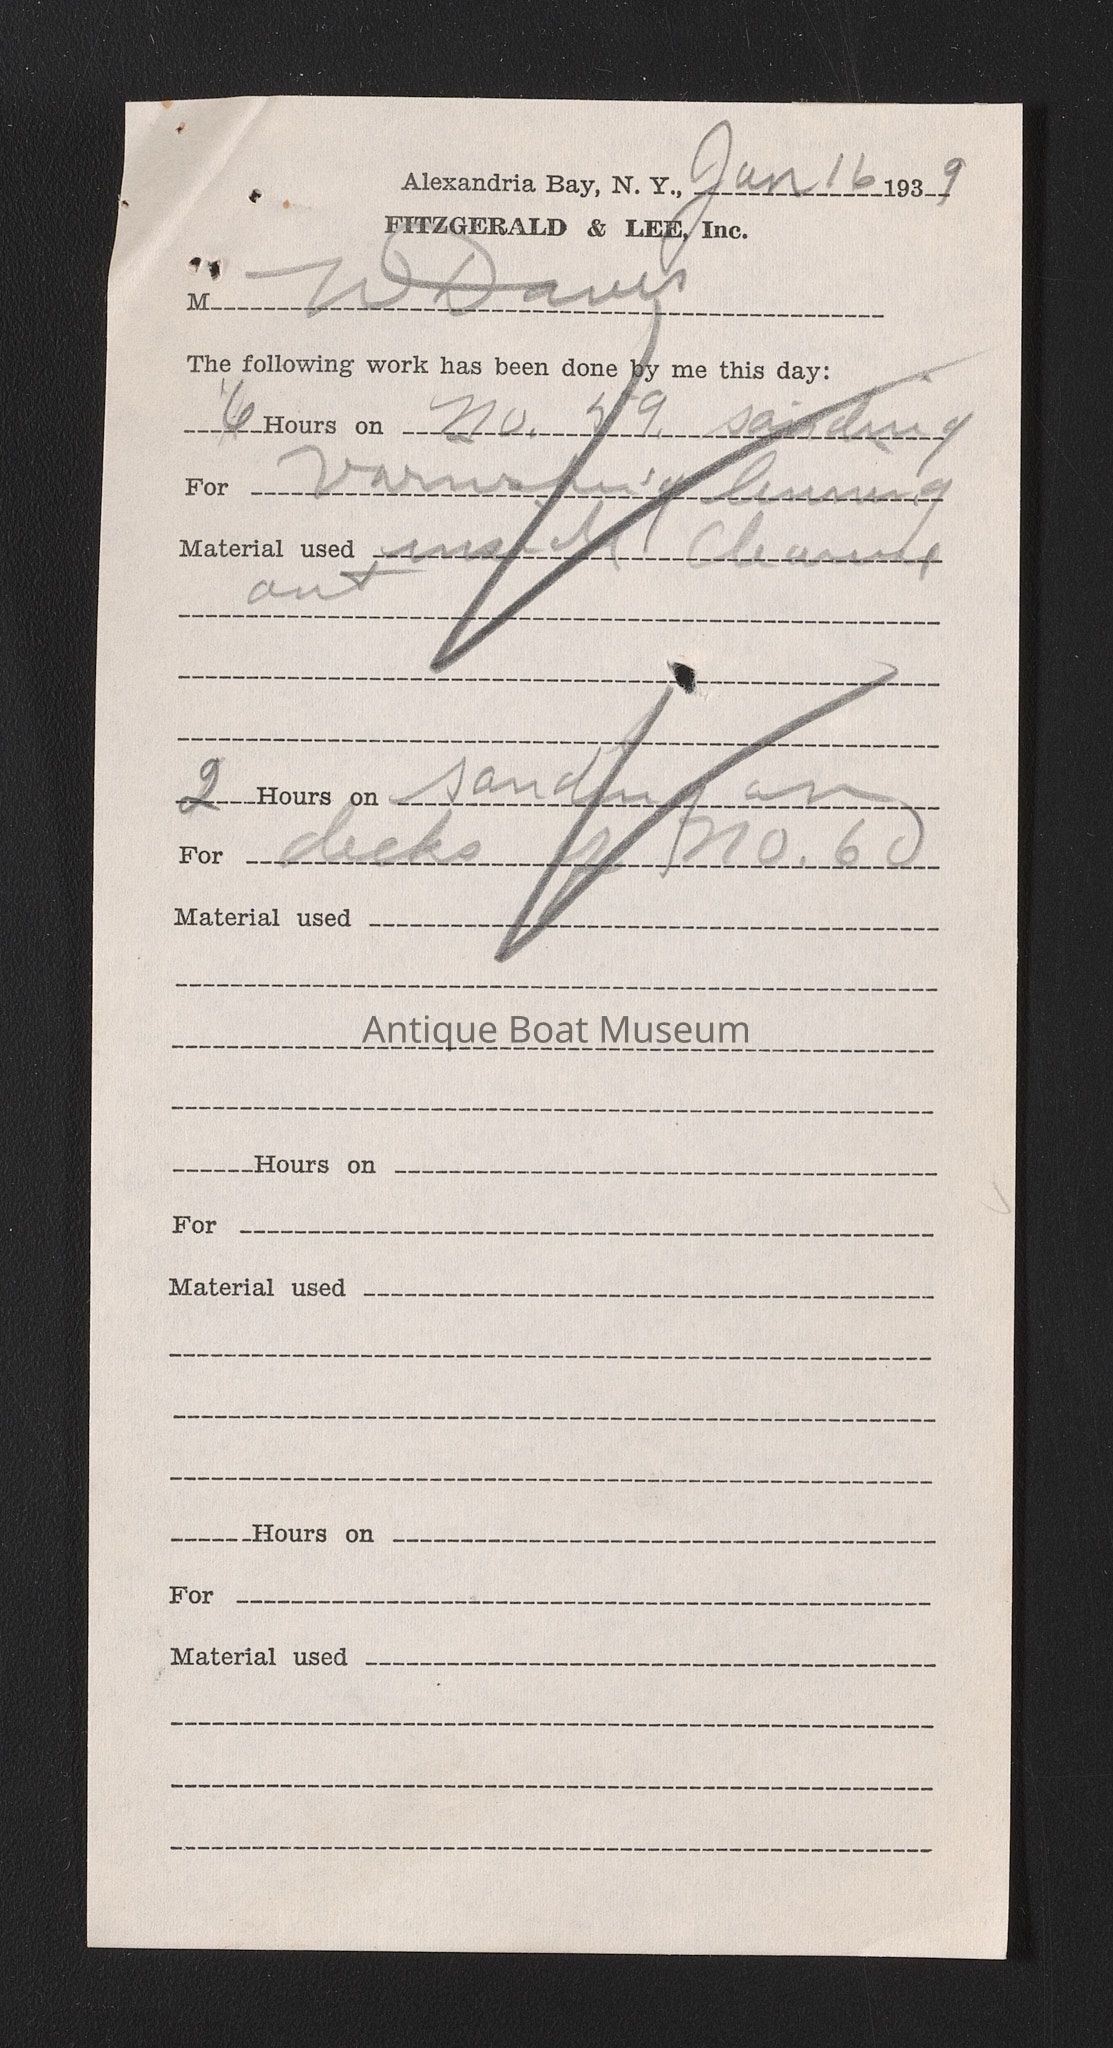 Alexandria Bay, N. Y., Jan 16 1939
FITZGERALD & LEE, Inc.
M W Davis
The following work has been done by me this day:
6 Hours on No. 59. sanding
For varnishing lining
Material used inside cleaning
out
2 Hours on sanding on
For decks of No. 60
Material used
Antique Boat Museum
Hours on
For
Material used
Hours on
For
Material used